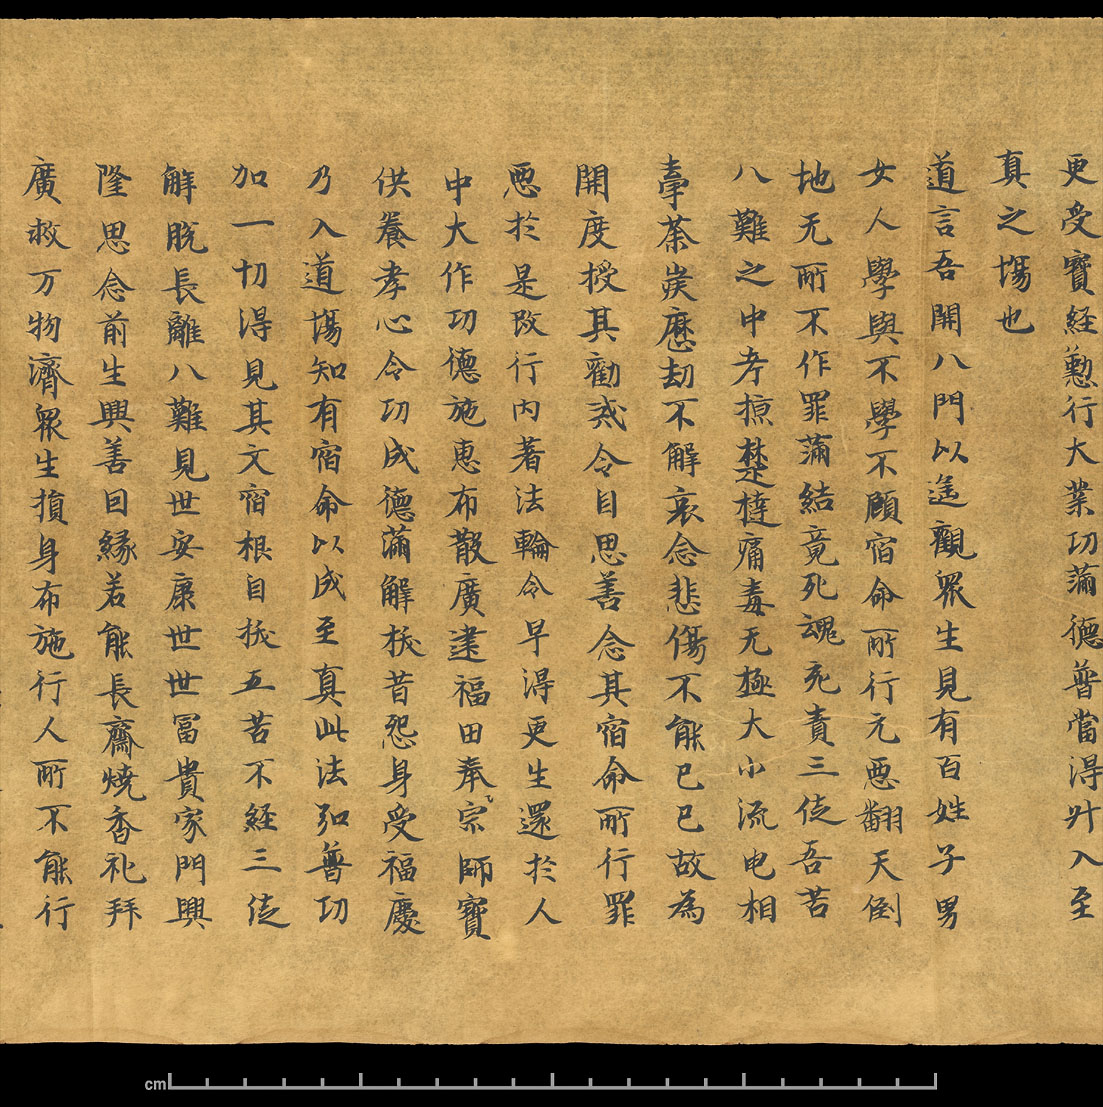 更受寳経懃行大業功滿德普當得叶入至
真之塲也
道言吾開八門以遥觀衆生見有百姓子男
女人學與不學不顧宿命所行元惡翻天倒
地无所不作罪滿結竟死魂充責三徒吾苦
八難之中考掠楚撻痛毒无極大小流曳相
牽荼炭歷劫不解哀念悲傷不能已已故為
開度授其勸戒令自思善念其宿命所行罪
惡於是改行内著法輪令早得更生還於人
中大作功德施惠布散廣建福田奉宗師寳
供養孝心令功成德滿解拔昔怨身受福慶
乃入道塲知有宿命以成至真此法弘普功
加一切得見其文宿根自拔五苦不経三徒
解脱長離八難見世安康世世冨貴家門興
隆思念前生興善因緣若能長齋燒香礼拜
廣救万物濟衆生損身布施行人所不能行
cm